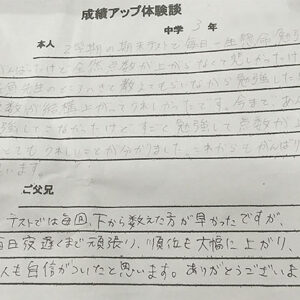 成績アップ体験談
中学 3 年
本人 2学期の期末テストで毎日一生懸命勉
がんばったけど全然点数が上がらなくて悲しかったけ
先生のところへきて教えてもらいながら勉強した
点数が結構上がってうれしかったです。今まで、あん
強してこなかったけど、すごく勉強して点数が上
とてもうれしいことが分かりました。これからもがんばり
います。
ご父兄
テストでは毎回、下から数えた方が早かったですが、
毎日夜遅くまで頑張り、順位も大幅に上がり、
人も自信がついたと思います。ありがとうございま